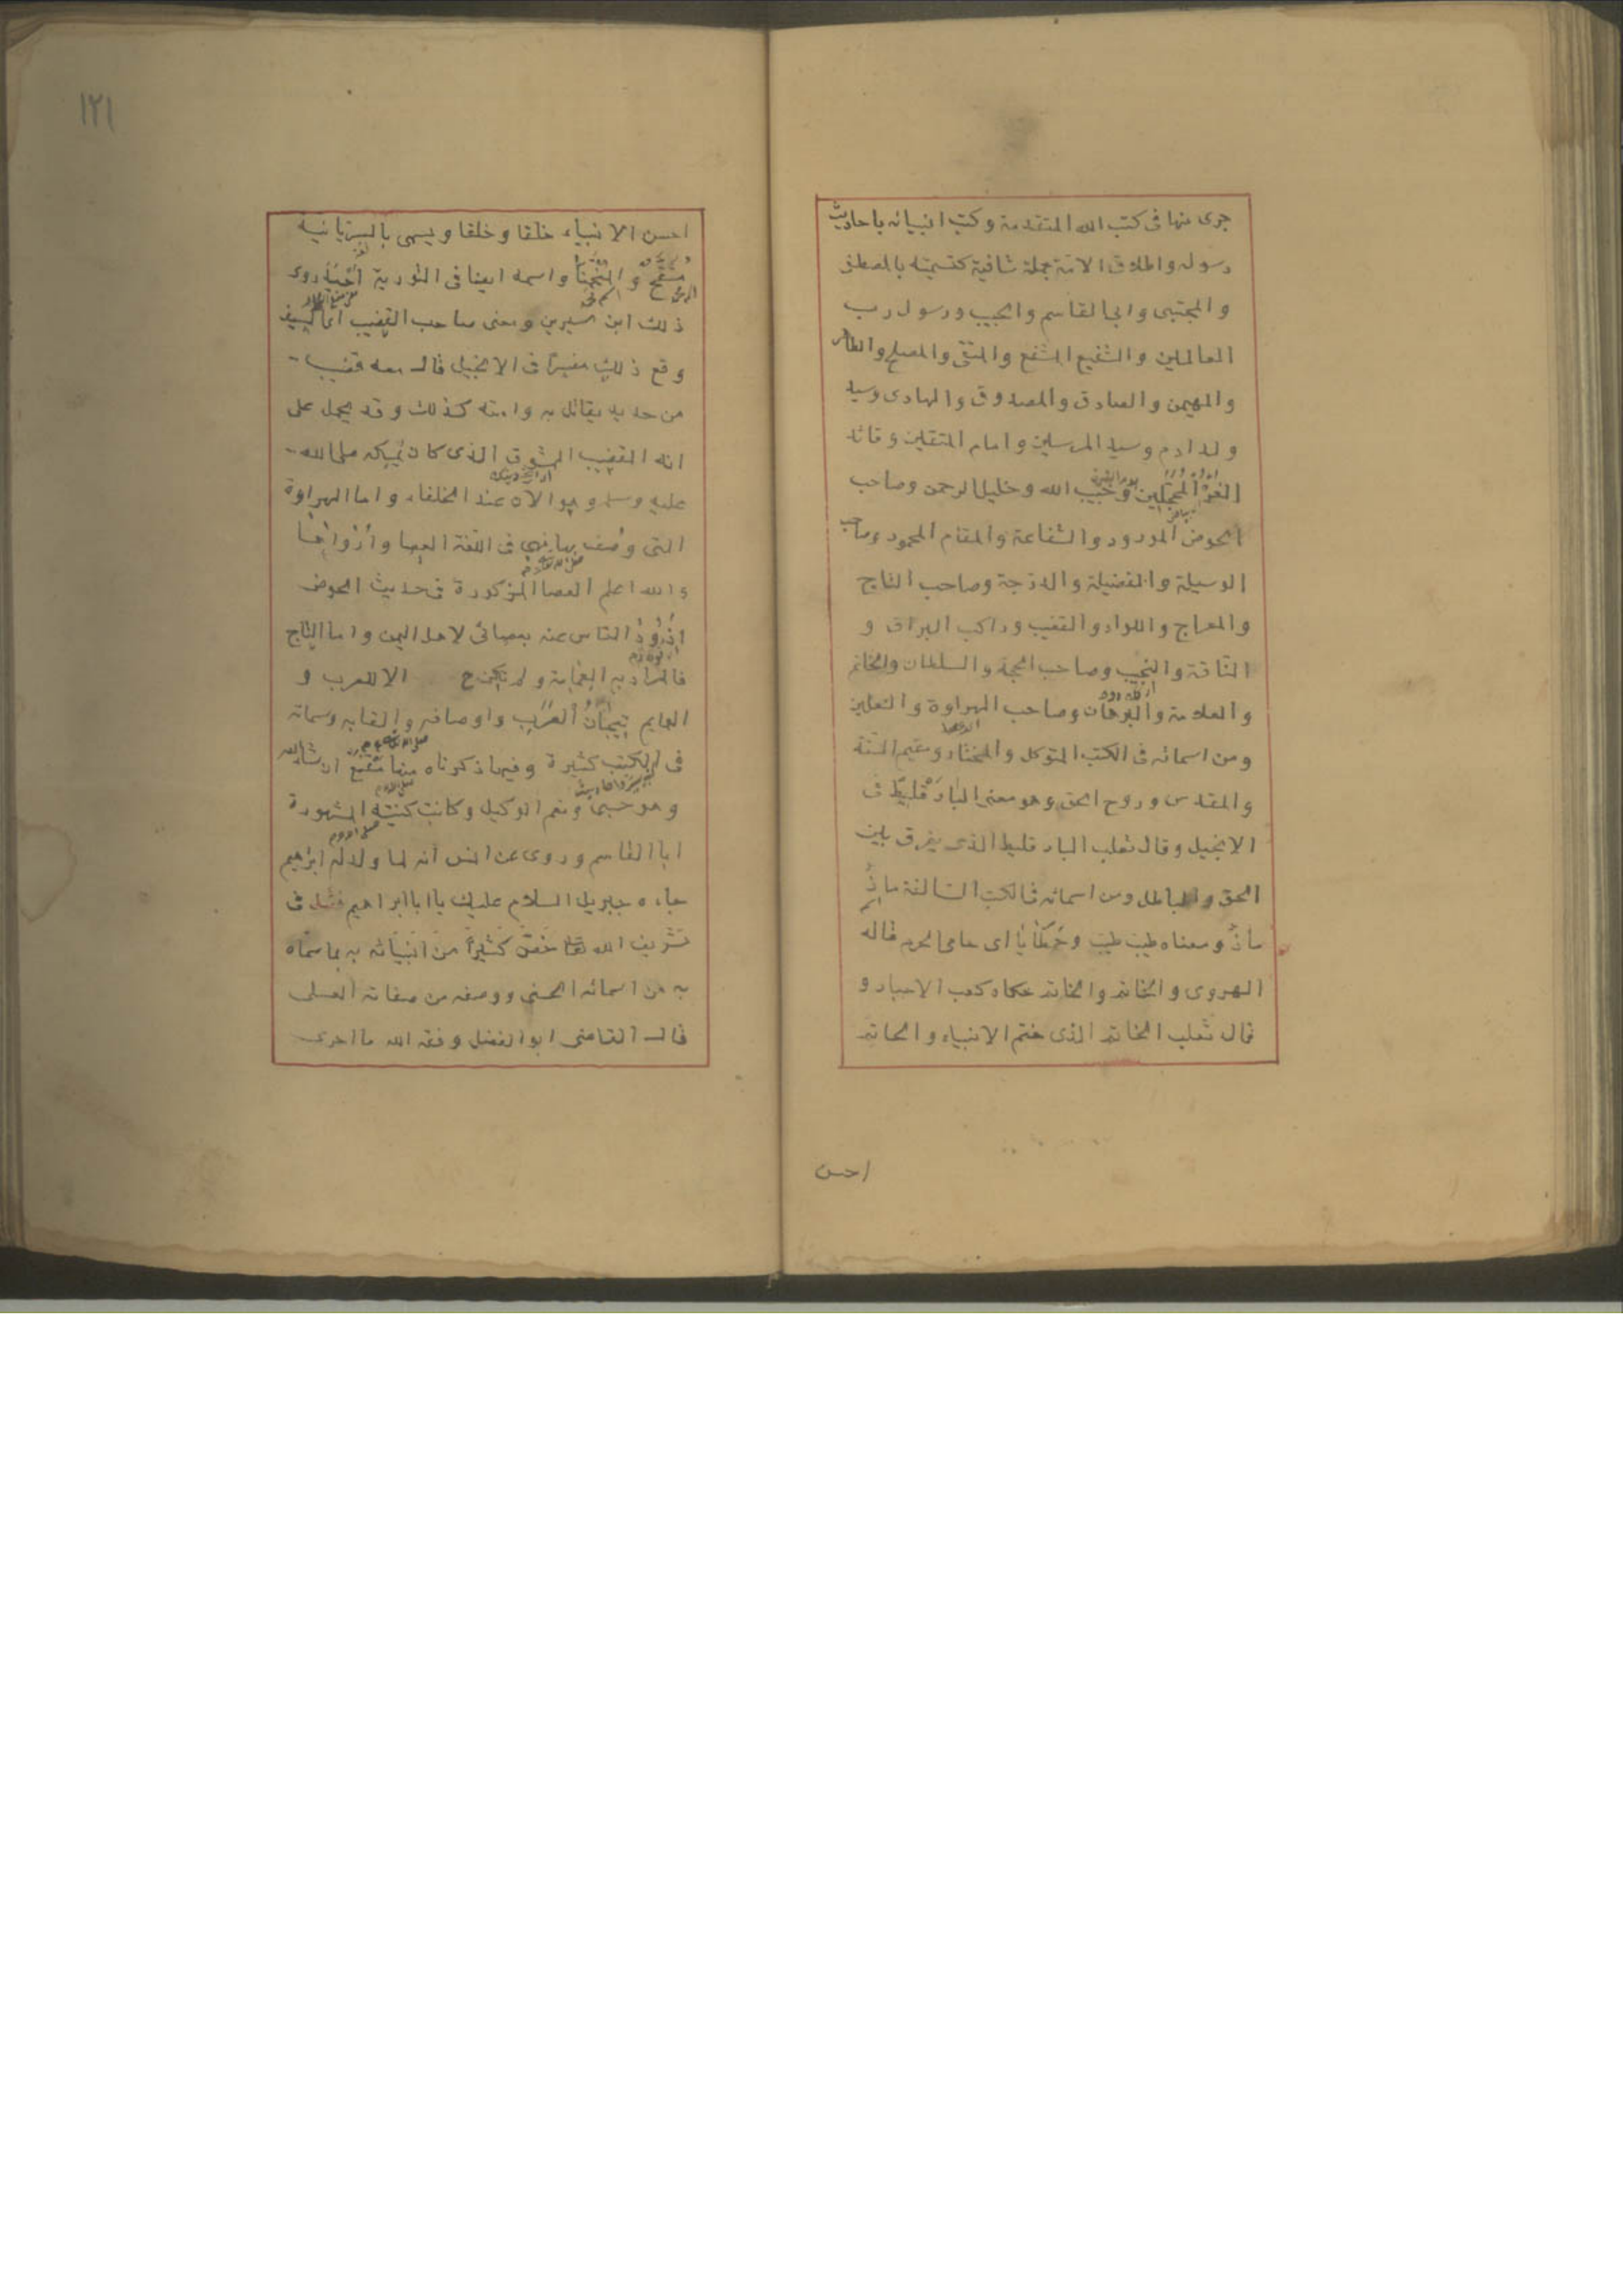 جرى منها فى كتب الله المتقدمة وكتب انبيائه باحاديث
رسوله واطلاق الامة جملة شافية كتسميته بالمصطفى
والمجتبى وابى القاسم والحبيب ورسول رب
العالمين والشفيع المشفع والمتقى والمصلح والطاهر
والمهيمن والصادق والمصدوق والهادى وسيد
ولد ادم وسيد المرسلين وامام المتقين وقائد
الغر المحجلين وحبيب الله وخليل الرحمن وصاحب
الحوض المورود والشفاعة والمقام المحمود وصاحب
الوسيلة والفضيلة والدرجة وصاحب التاج
والمعراج واللواء والقضيب وراكب البراق و
الناقة والنجيب وصاحب الحجة والسلطان والخاتم
والعلامة والبرهان وصاحب الهراوة والنعلين
ومن اسمائه فى الكتب المتوكل والمختار ومقيم السنة
والمقدس وروح الحق وهو معنى البارقليط فى
الانجيل وقال ثعلب البارقليط الذى يفرق بين
الحق والباطل ومن اسمائه فى الكتب السالفة ماذ
ماذ ومعناه طيب طيب وحمطايا اى حامى الحرم قاله
الهروى والخاتم والحاتم حكاه كعب الاحبار و
قال ثعلب الخاتم الذى ختم الانبياء والحاتم
احسن
١٢١
احسن الانبياء خلقا وخلقا ويسمى بالسريانية
مشفح والمنحمنا واسمه ايضا فى التورية احيد روى
ذلك ابن سيرين ومعنى صاحب القضيب اى السيف
وقع ذلك مفسرا فى الانجيل قال معه قضيب
من حديد يقاتل به وامته كذلك وقد يحمل على
انه القضيب الممشوق الذى كان يمسكه صلى الله
عليه وسلم وهو الان عند الخلفاء واما الهراوة
التى وصف بها فهى فى اللغة العصا واراها
والله اعلم العصا المذكورة فى حديث الحوض
اذود الناس عنه بعصائى لاهل اليمن واما التاج
فالمراد به العمامة ولم تكن ح الا للعرب و
العمايم تيجان العرب واوصافه والقابه وسماته
فى الكتب كثيرة وفيما ذكرناه منها مقنع ان شاء الله
وهو حسبى ونعم الوكيل وكانت كنيته المشهورة
ابا القاسم وروى عن انس انه لما ولد له ابرهيم
جاءه جبريل السلام عليك يا ابا ابراهيم فصل فى
تشريف الله تعا خص كثيرا من انبيائه به بما سماه
به من اسمائه الحسنى ووصفه من صفاته العلى
قال القاضى ابو الفضل وفقه الله ما احرى